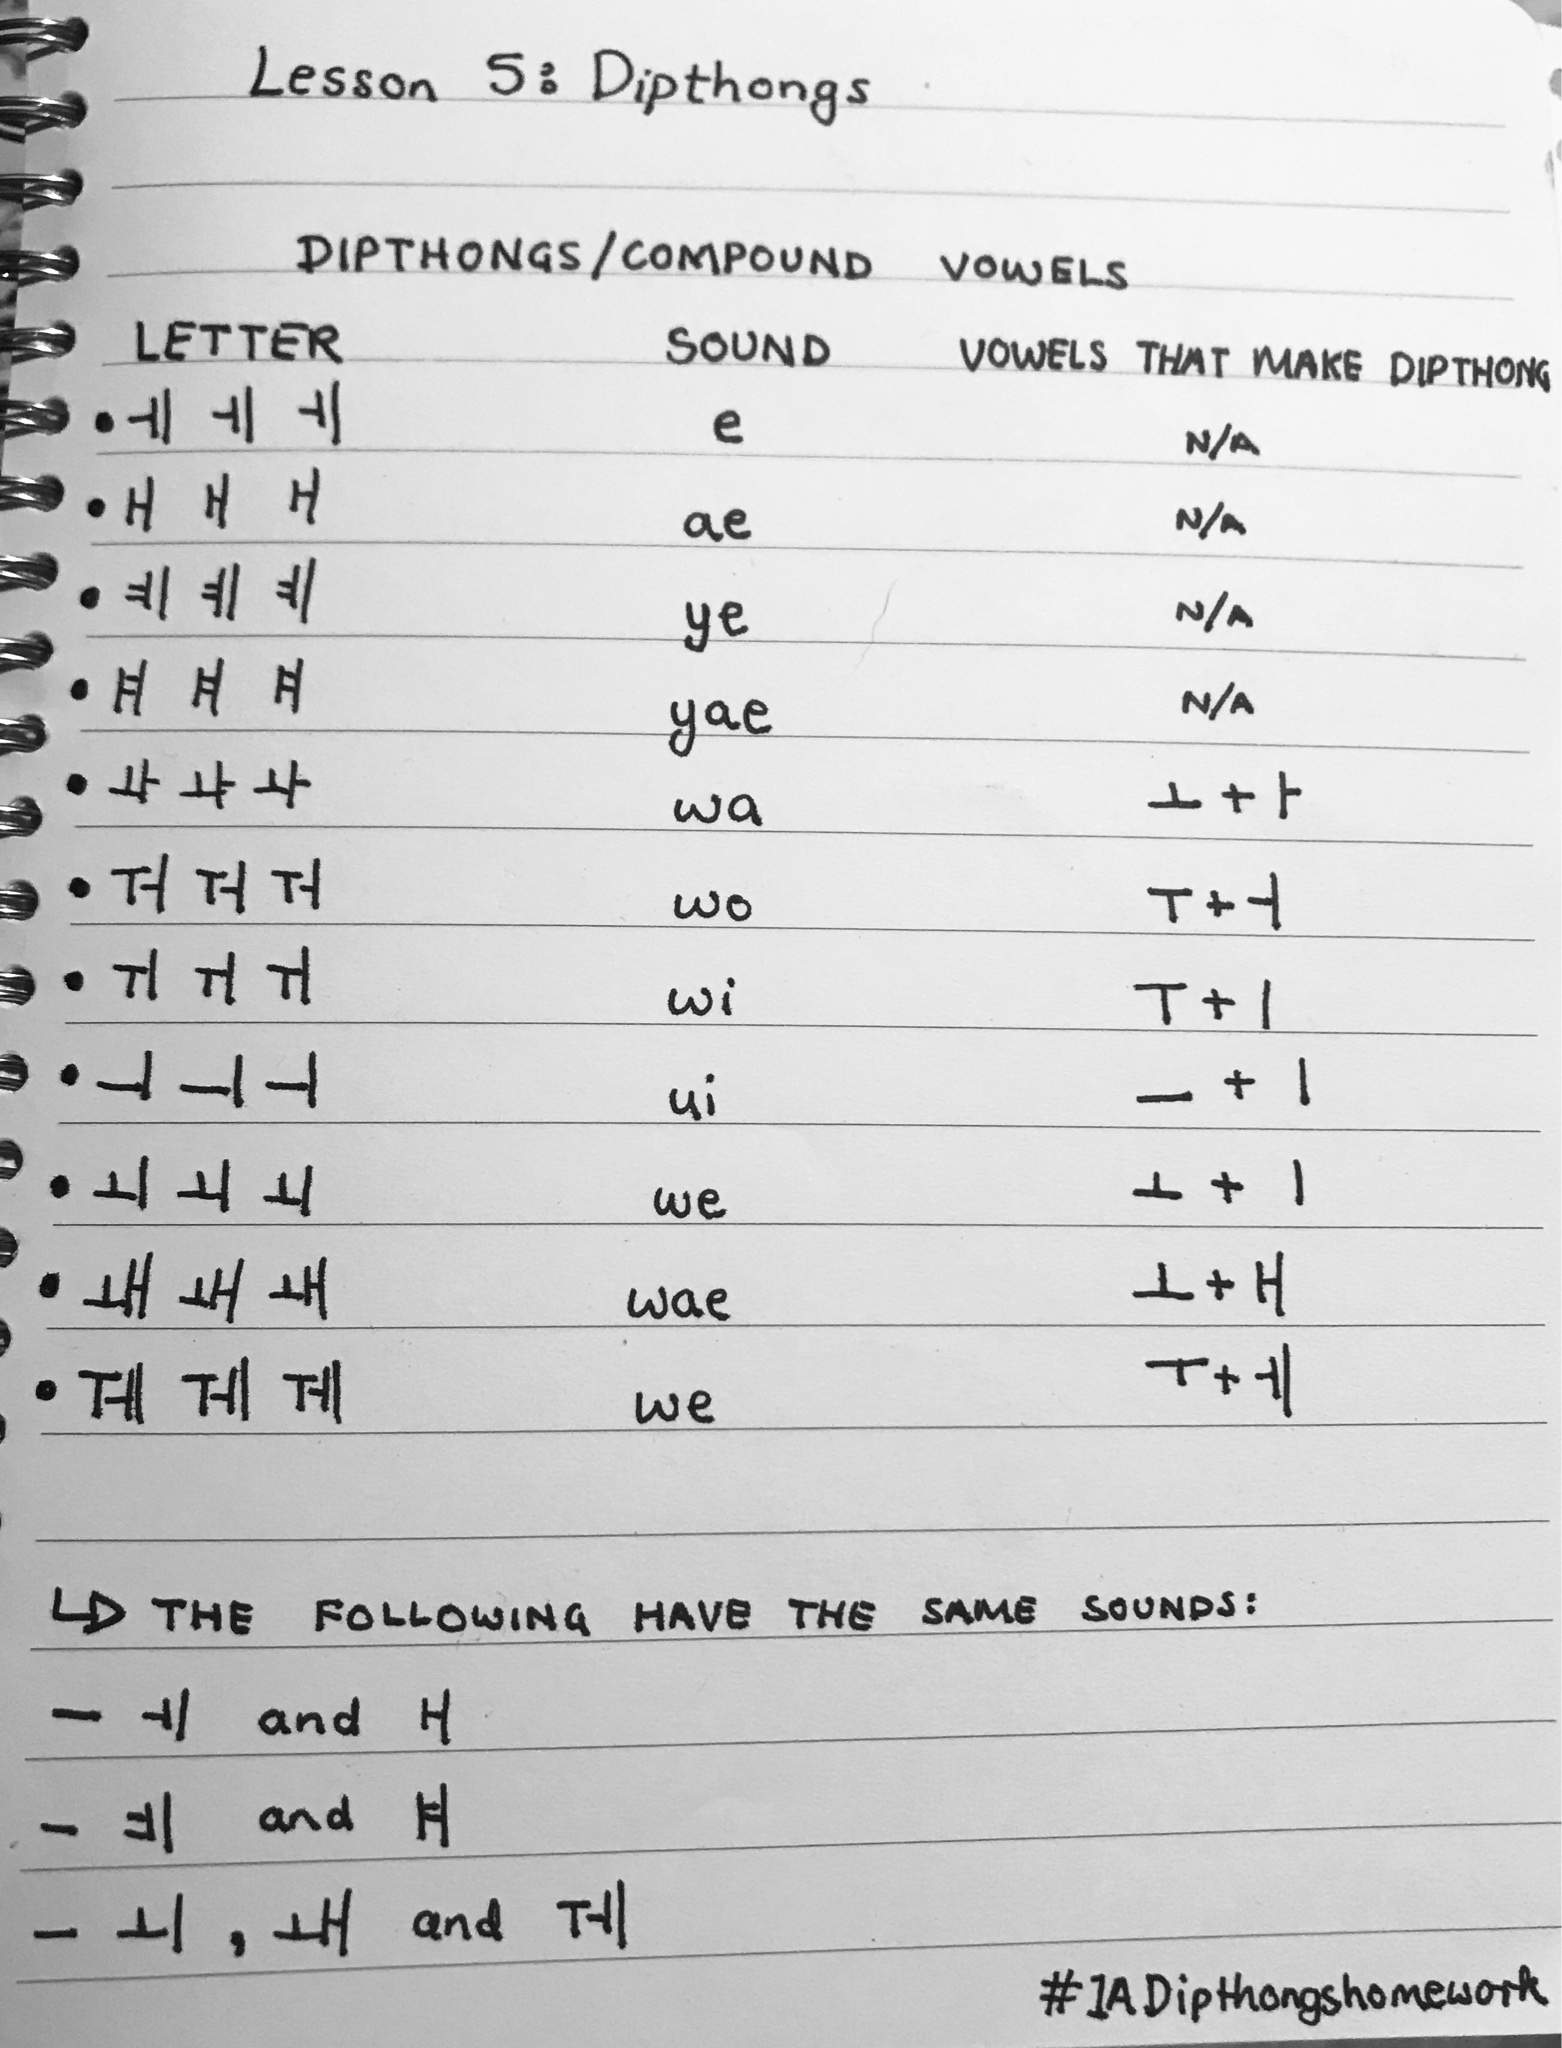 Lesson 5: Dipthongs
DIPTHONGS/COMPOUND VOWELS
LETTER SOUND VOWELS THAT MAKE DIPTHONG
• ㅔ ㅔ ㅔ e N/A
• ㅐ ㅐ ㅐ ae N/A
• ㅖ ㅖ ㅖ ye N/A
• ㅒ ㅒ ㅒ yae N/A
• ㅘ ㅘ ㅘ wa ㅗ + ㅏ
• ㅝ ㅝ ㅝ wo ㅜ + ㅓ
• ㅟ ㅟ ㅟ wi ㅜ + ㅣ
• ㅢ ㅢ ㅢ ui ㅡ + ㅣ
• ㅚ ㅚ ㅚ we ㅗ + ㅣ
• ㅙ ㅙ ㅙ wae ㅗ + ㅐ
• ㅞ ㅞ ㅞ we ㅜ + ㅔ
↳ THE FOLLOWING HAVE THE SAME SOUNDS:
– ㅔ and ㅐ
– ㅖ and ㅒ
– ㅚ, ㅙ and ㅞ
#1ADipthongshomework